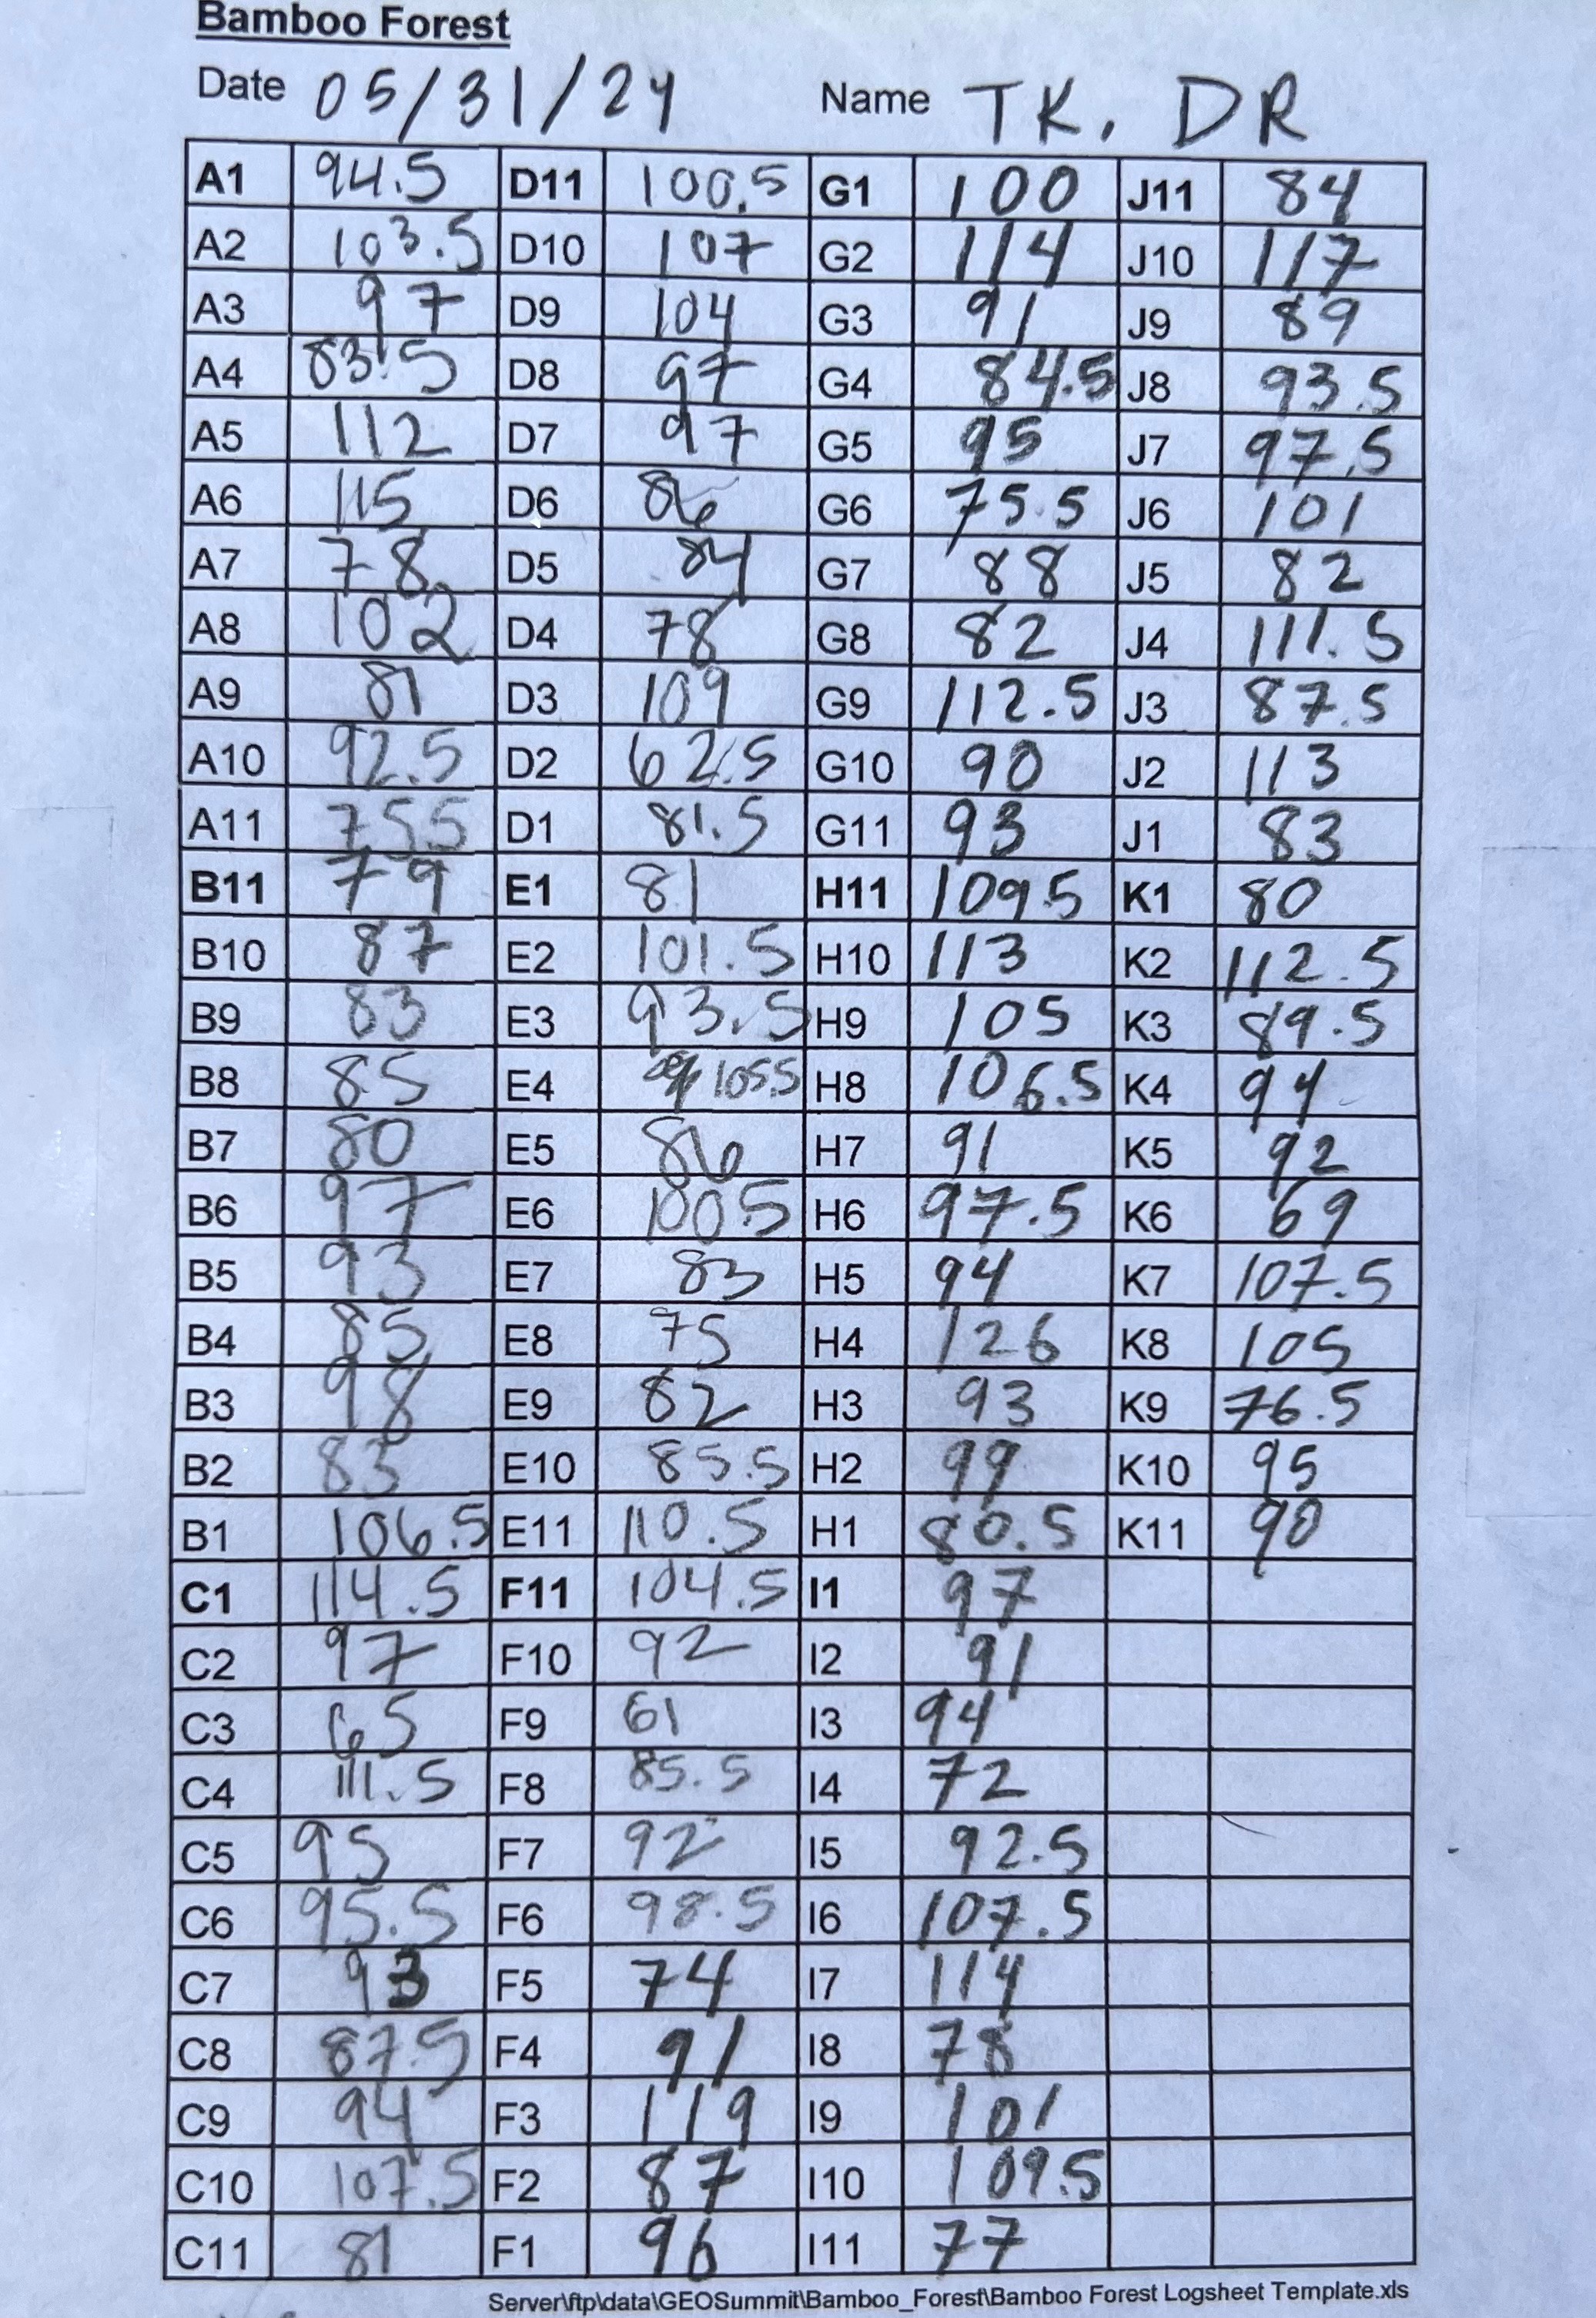 Bamboo Forest
Date 05/31/24 Name TK, DR
A1 94.5 D11 100.5 G1 100 J11 84
A2 103.5 D10 107 G2 114 J10 117
A3 97 D9 104 G3 91 J9 89
A4 83.5 D8 97 G4 84.5 J8 93.5
A5 112 D7 97 G5 95 J7 97.5
A6 115 D6 86 G6 75.5 J6 101
A7 78 D5 84 G7 88 J5 82
A8 102 D4 78 G8 82 J4 111.5
A9 81 D3 109 G9 112.5 J3 87.5
A10 92.5 D2 62.5 G10 90 J2 113
A11 75.5 D1 81.5 G11 93 J1 83
B11 79 E1 81 H11 109.5 K1 80
B10 87 E2 101.5 H10 113 K2 112.5
B9 83 E3 93.5 H9 105 K3 89.5
B8 85 E4 105.5 H8 106.5 K4 94
B7 80 E5 86 H7 91 K5 92
B6 97 E6 100.5 H6 97.5 K6 69
B5 93 E7 83 H5 94 K7 107.5
B4 85 E8 75 H4 126 K8 105
B3 98 E9 82 H3 93 K9 76.5
B2 83 E10 85.5 H2 99 K10 95
B1 106.5 E11 110.5 H1 80.5 K11 90
C1 114.5 F11 104.5 I1 97
C2 97 F10 92 I2 91
C3 65 F9 61 I3 94
C4 111.5 F8 85.5 I4 72
C5 95 F7 92 I5 92.5
C6 95.5 F6 98.5 I6 107.5
C7 93 F5 74 I7 114
C8 87.5 F4 91 I8 78
C9 94 F3 119 I9 101
C10 107.5 F2 87 I10 109.5
C11 81 F1 96 I11 77
Server\ftp\data\GEOSummit\Bamboo_Forest\Bamboo Forest Logsheet Template.xls